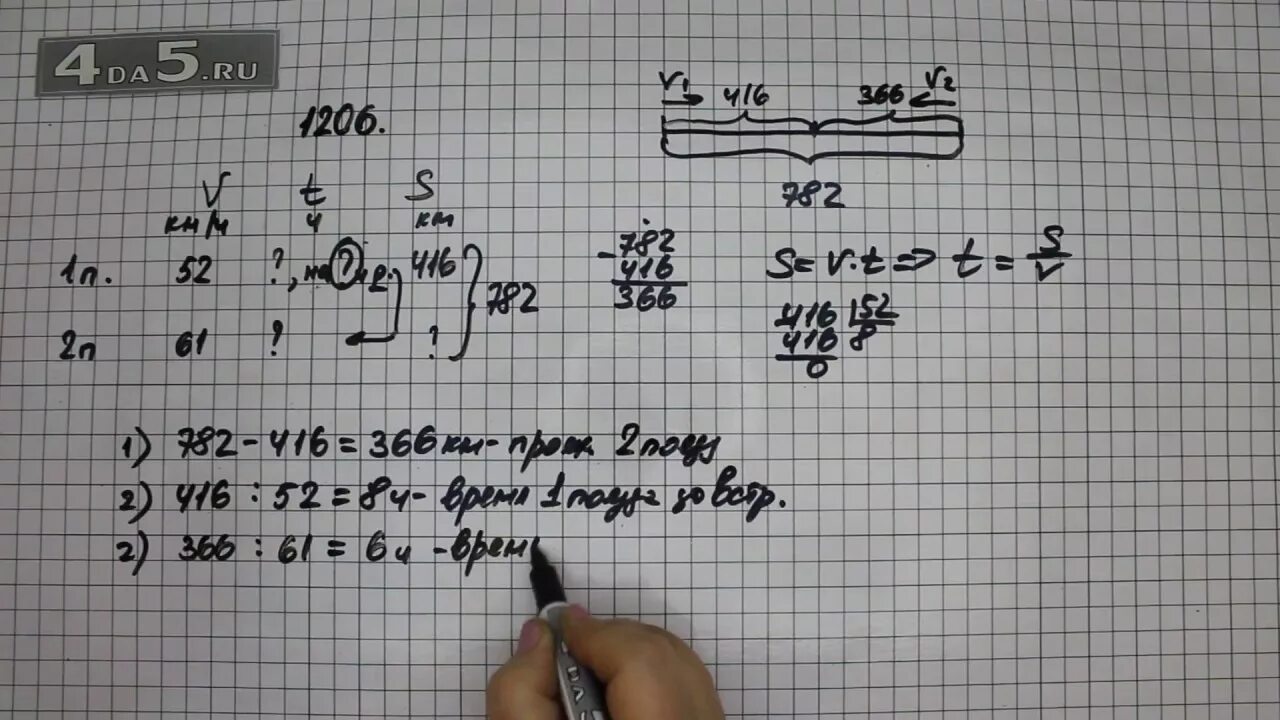 4DA5.RU
1206.
V1 416 366 V2
782
V t S
км/ч ч км
1п. 52 ?, на ? ч 416
782
2п 61 ? ?
- 782
416
366
S = V·t => t = S/V
416 52
416 8
0
1) 782 - 416 = 366 км -  2 поезд
2) 416 : 52 = 8 ч - время 1 поезда до встр.
2) 366 : 61 = 6 ч - врем
4DA5